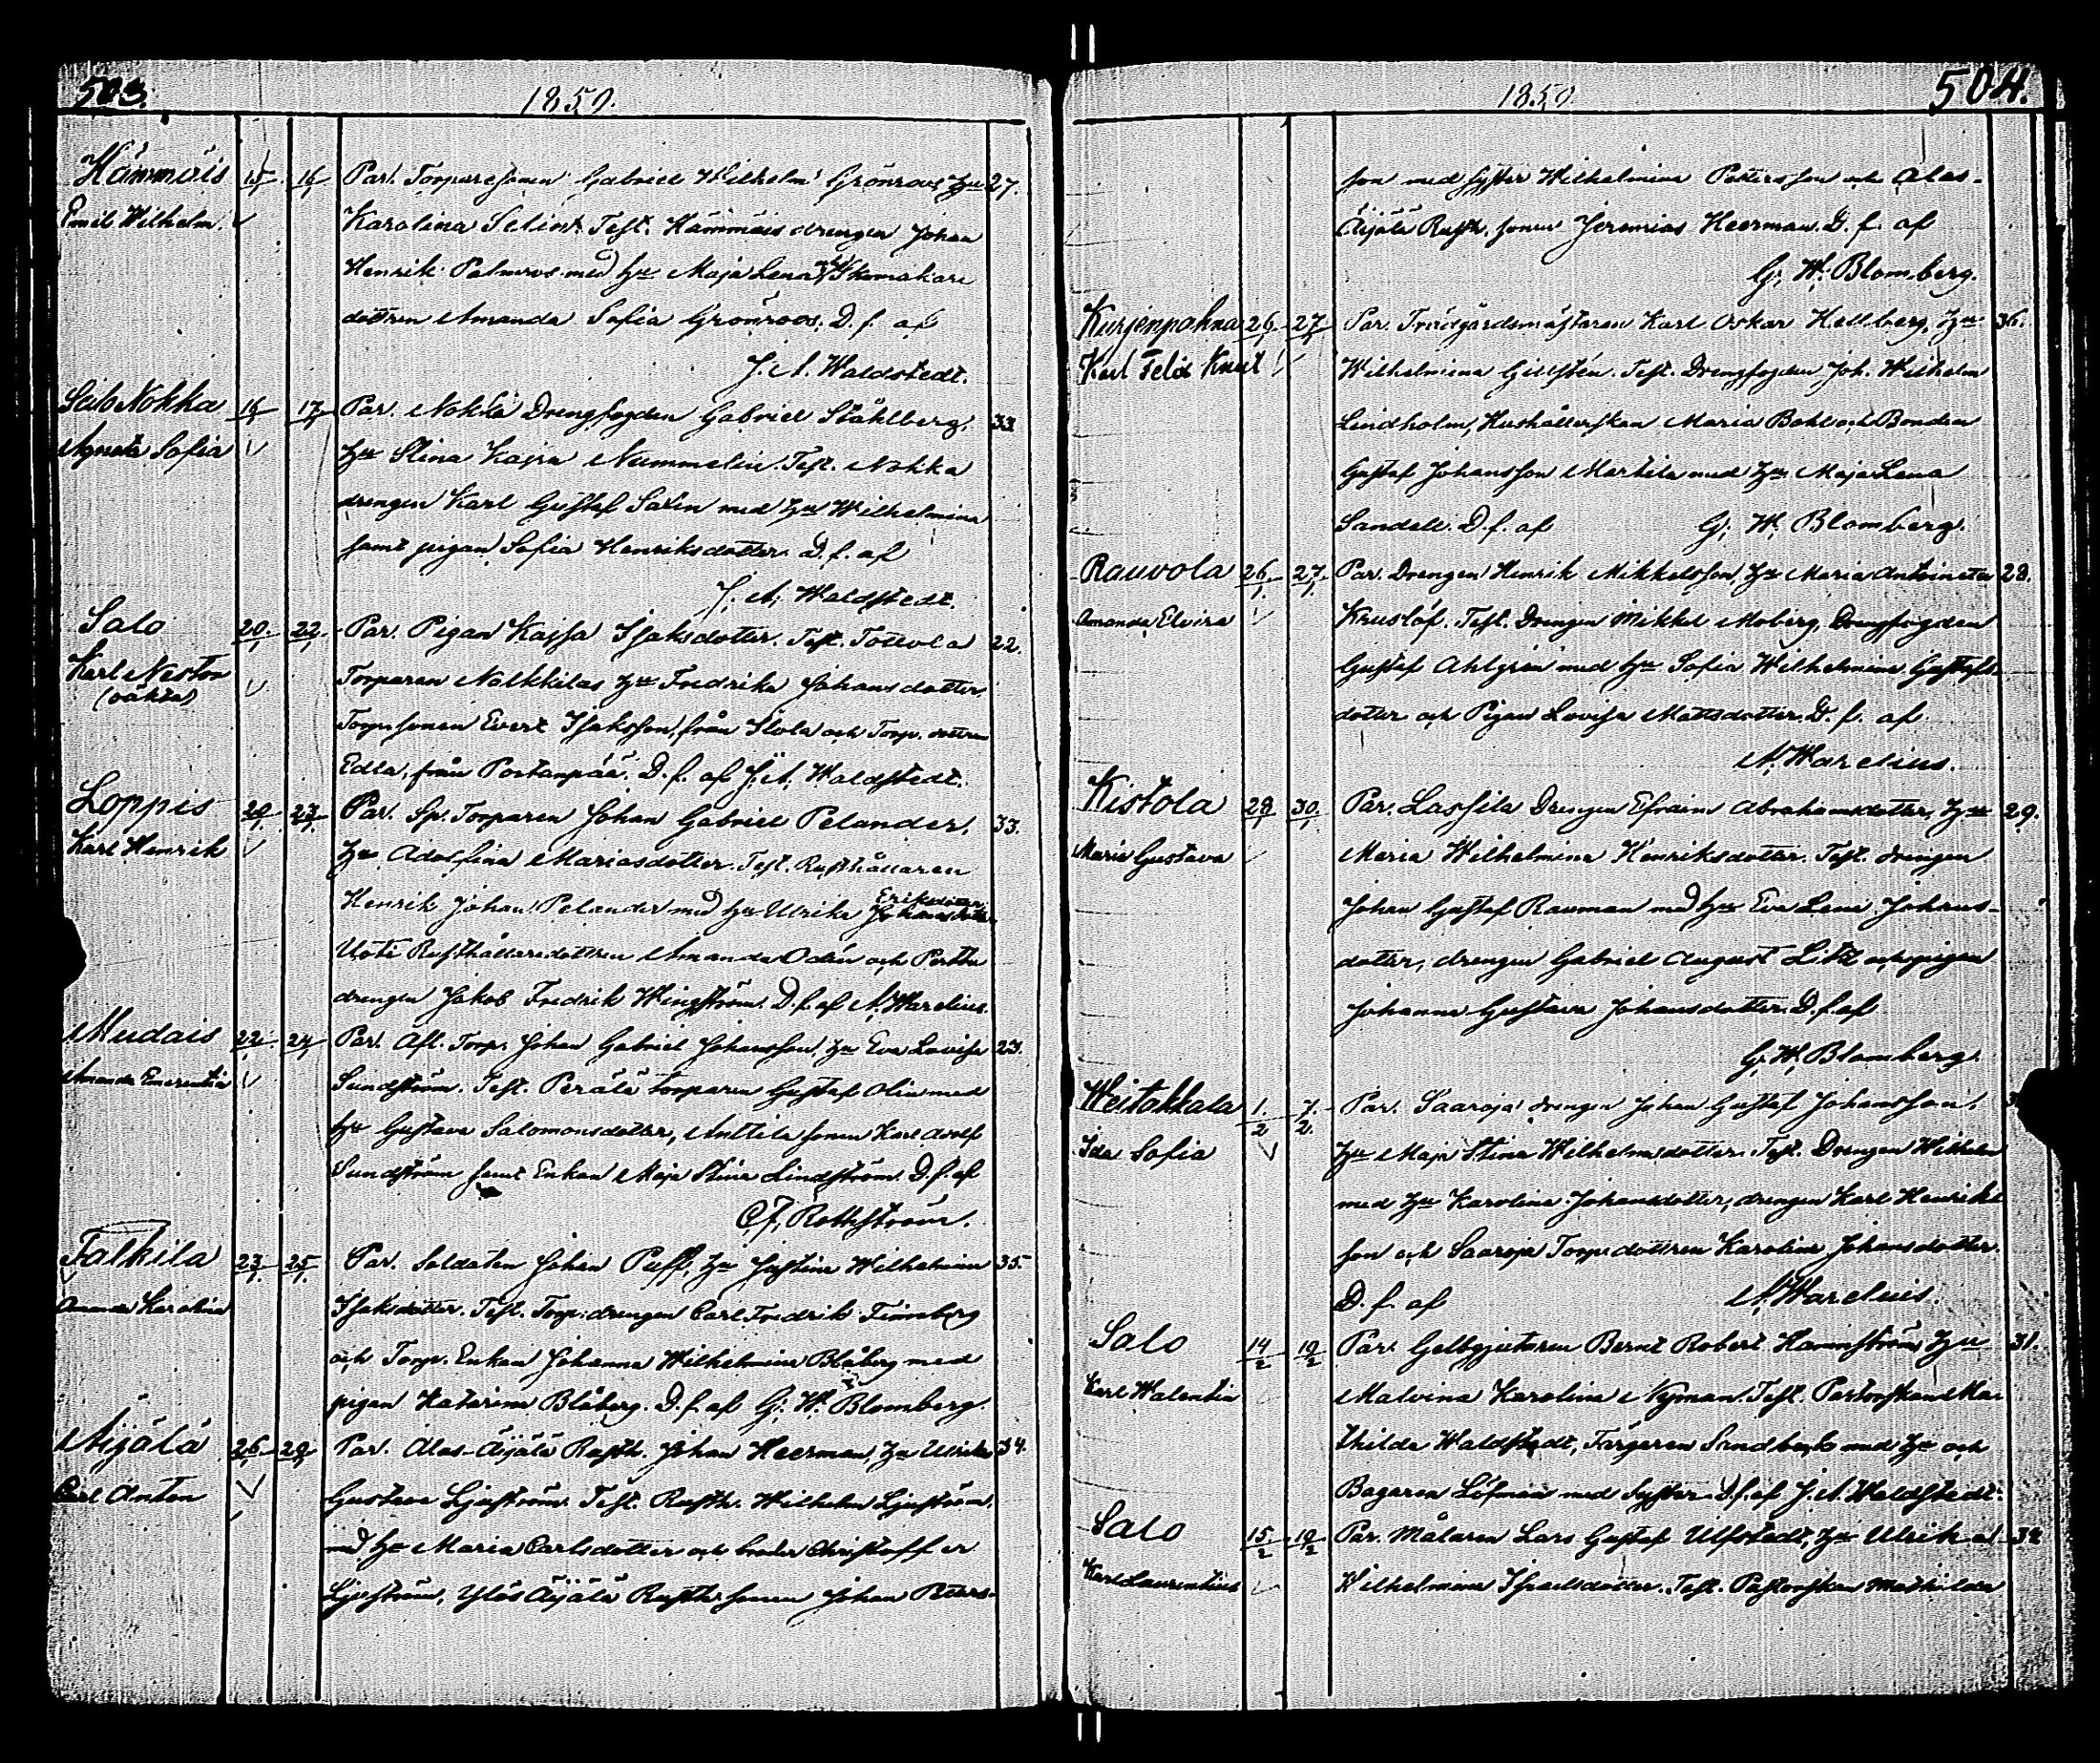 503.
1859.
Hämmäis 15/1 16/1 Par. Torparesonen Gabriel Wilhelm Grönroos, Hu 27.
Emil Wilhelm. Karolina Selin. Test. Hämmäis drengen Johan
Henrik Palmroos med Hu Maja Lena, Skomakare
dottren Amanda Sofia Grönroos. D. f. af
J. A. Waldstedt.
Nokka 16/1 17/1 Par. Nokka Drengfogden Gabriel Ståhlberg, 33
Agneta Sofia Hu Stina Kajsa Nummelin. Test. Nokka
drengen Karl Gustaf Salin med Hu Wilhelmina
samt pigan Sofia Henriksdotter. D. f. af
J. A. Waldstedt.
Salo 20/1 22/1 Par. Pigan Kajsa Isaksdotter. Test. Tottola 22.
Karl Nestor Torparen Nalkkilas Hu Fredrika Johansdotter,
(oäkta) Torp. sonen Evert Isaksson, från Ilola och Torp. dottren
Edla, från Portanpää. D. f. af J. A. Waldstedt.
Loppis 20/1 23/1 Par. Sp. Torparen Johan Gabriel Pelander, 33.
Karl Henrik Hu Adolfina Mariasdotter. Test. Rusthållaren
Henrik Johan Pelander med Hu Ulrika Eriksdotter
Uoti Rusthållaredottren Amanda Odén och Perttu
drengen Jakob Fredrik Wingström. D. f. af A. Warelius.
Mudais 22/1 24/1 Par. Afl. Torp. Johan Gabriel Johansson, Hu Eva Lovisa 23.
Amanda Emerentia Sundström. Test. Perälä torparen Gustaf Olin med
Hu Gustava Salomonsdotter, Anttila sonen Karl Adolf
Sundström samt Enkan Maja Stina Lindström. D. f. af
Rothström.
Talkila 23/1 25/1 Par. Soldaten Johan Puff, Hu Justina Wilhelmina 35.
Amanda Karolina Isaksdotter. Test. Torp. drengen Carl Fredrik Finnberg
och Torp. Enkan Johanna Wilhelmina Blåberg med
pigan Katarina Blåberg. D. f. af G. W. Blomberg.
Äijälä 26/1 29/1 Par. Alas-Äijälä Rusth. Johan Heerman, Hu Ulrika 34.
Carl Anton Gustava Ljuström. Test. Rusth. Wilhelm Ljuström,
med Hu Maria Carlsdotter och broder Christoffer
Ljuström, Ylös Äijälä Rusth. sonen Johan Peters-
504.
1859
son med syster Wilhelmina Petersson och Alas-
Äijälä Rusth. sonen Jeremias Heerman. D. f. af
G. W. Blomberg.
Kurjenpahna 26/1 27/1 Par. Trädgårdsmästaren Karl Oskar Hellberg, Hu 36.
Karl Felix Knut Wilhelmina Gillstén. Test. Drengfogden Joh. Wilhelm
Lindholm, Hushållerskan Maria Bohl och Bonden
Gustaf Johansson Marttila med Hu Maja Lena
Sandell. D. f. af G. W. Blomberg.
Rauvola 26/1 27/1 Par. Drengen Henrik Mikkelsson, Hu Maria Antoinetta 28.
Amanda Elvira Kruslöf. Test. Drengen Mikkel Moberg, Drengfogden
Gustaf Ahlgrén med Hu Sofia Wilhelmina Gustafs-
dotter och Pigan Lovisa Mattsdotter. D. f. af
A. Warelius.
Kistola 28/1 30/1 Par. Lassila Drengen Efraim Abrahamsdotter, Hu 29.
Maria Gustava Maria Wilhelmina Henriksdotter. Test. drengen
Johan Gustaf Rauman med Hu Eva Lena Johans-
dotter, drengen Gabriel August Litz och pigan
Johanna Gustava Johansdotter. D. f. af
G. W. Blomberg.
Weitakkala 1/2 7/2 Par. Saaroja drengen Johan Gustaf Johansson,
Ida Sofia Hu Maja Stina Wilhelmsdotter. Test. Drengen Wilhelm
med Hu Karolina Johansdotter, drengen Karl Henriks
son och Saaroja Torp. dottren Karolina Johansdotter.
D. f. af A. Warelius.
Salo 14/2 19/2 Par. Gelbgjutaren Bernt Robert Hammström, Hu 31.
Karl Walentin Malvina Karolina Nyman. Test. Pastorskan Ma-
thilda Waldstedt, Färgaren Sandbäck med Hu och
Bagaren Löfman med Syster. D. f. af J. A. Waldstedt.
Salo 15/2 19/2 Par. Målaren Lars Gustaf Ulfstedt, Hu Ulrika 32
Karl Laurentius Wilhelmina Israelsdotter. Test. Pastorskan Mathilda